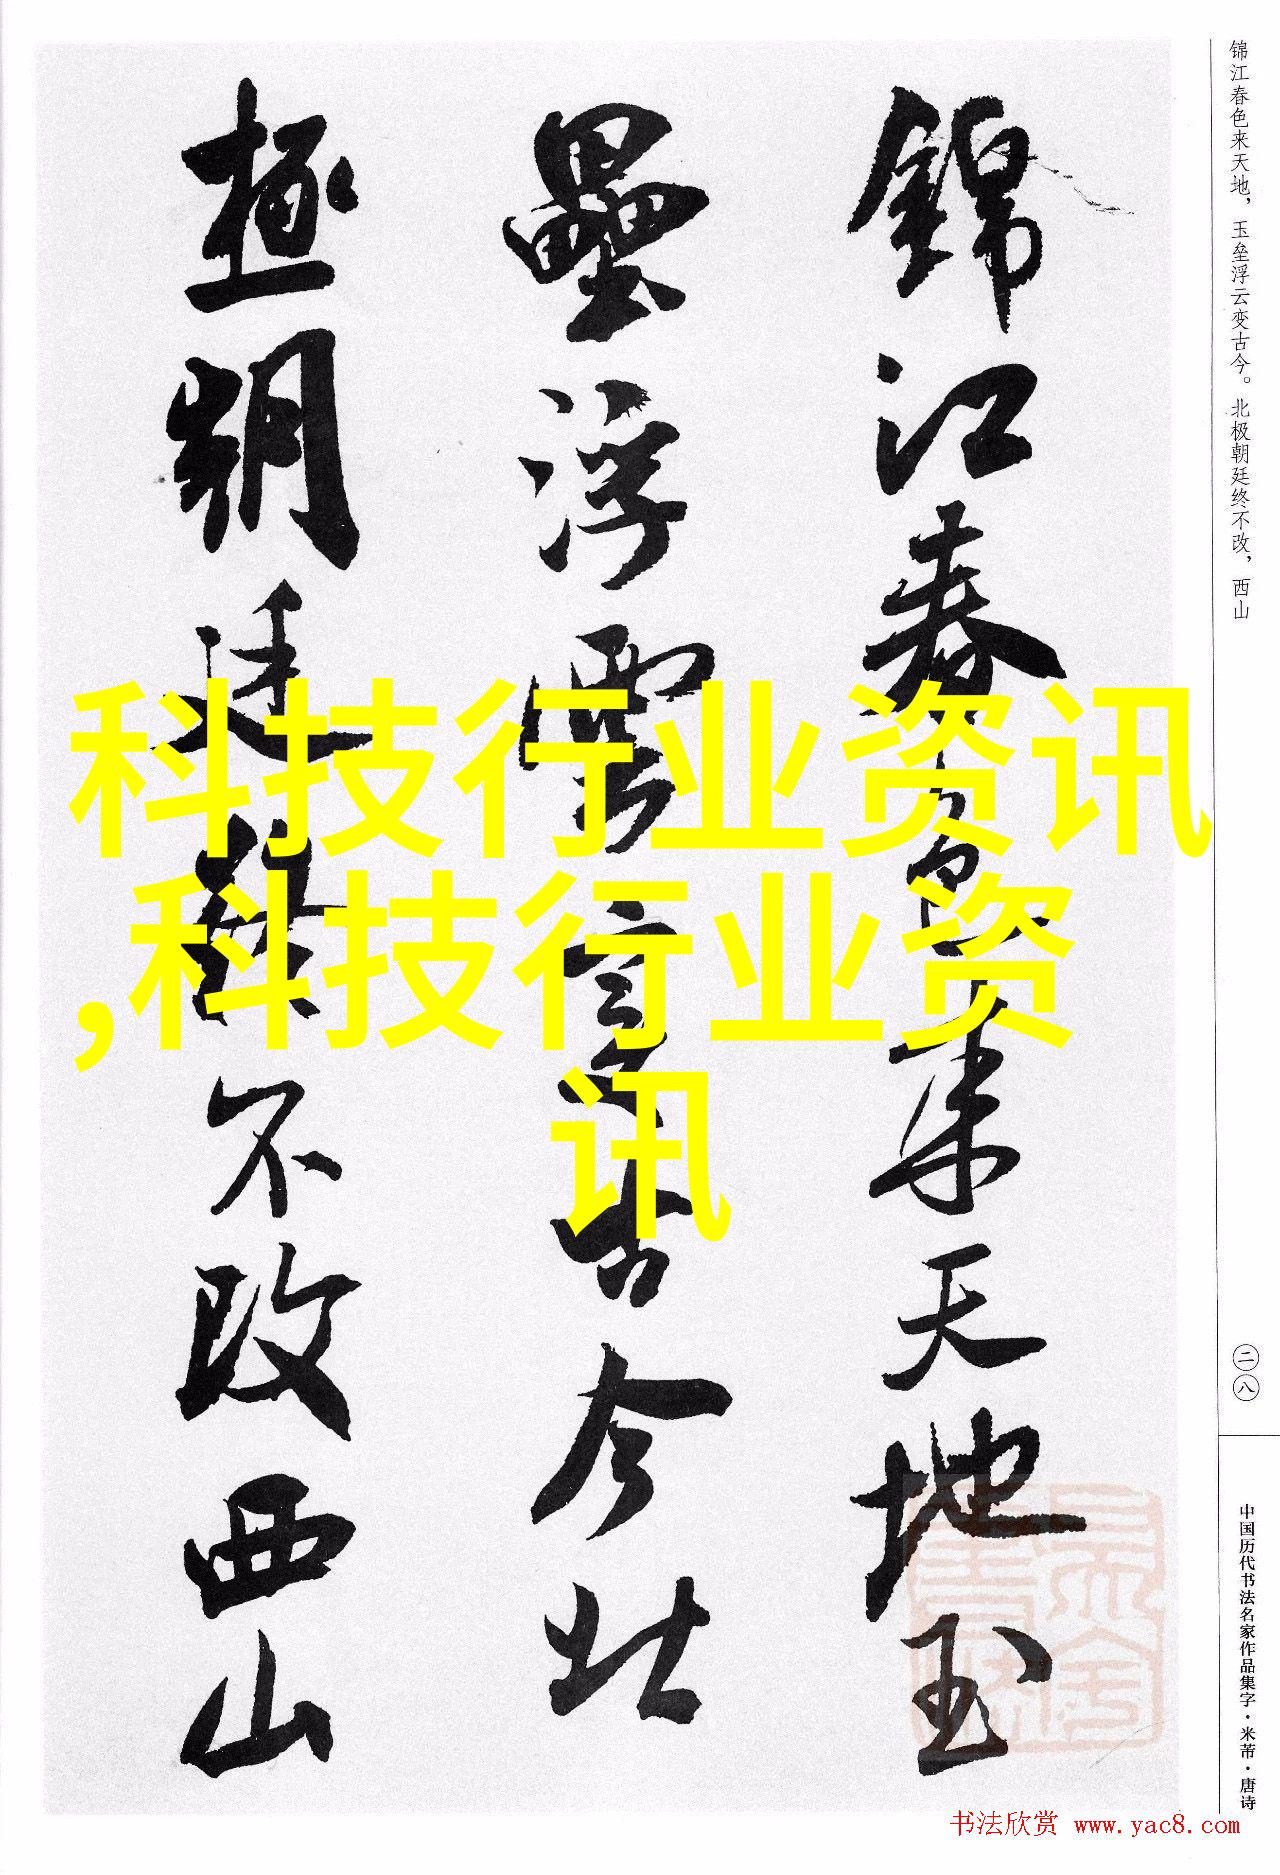 锦江春色来天地，玉垒浮云变古今。北极朝廷终不改，西山
錦江春色来天地玉
壘浮雲變古今北
極朝廷終不改西山
科技行业资讯
,科技行业资
讯
二八
中国历代书法名家作品集字·米芾·唐诗
书法欣赏 www.yac8.com